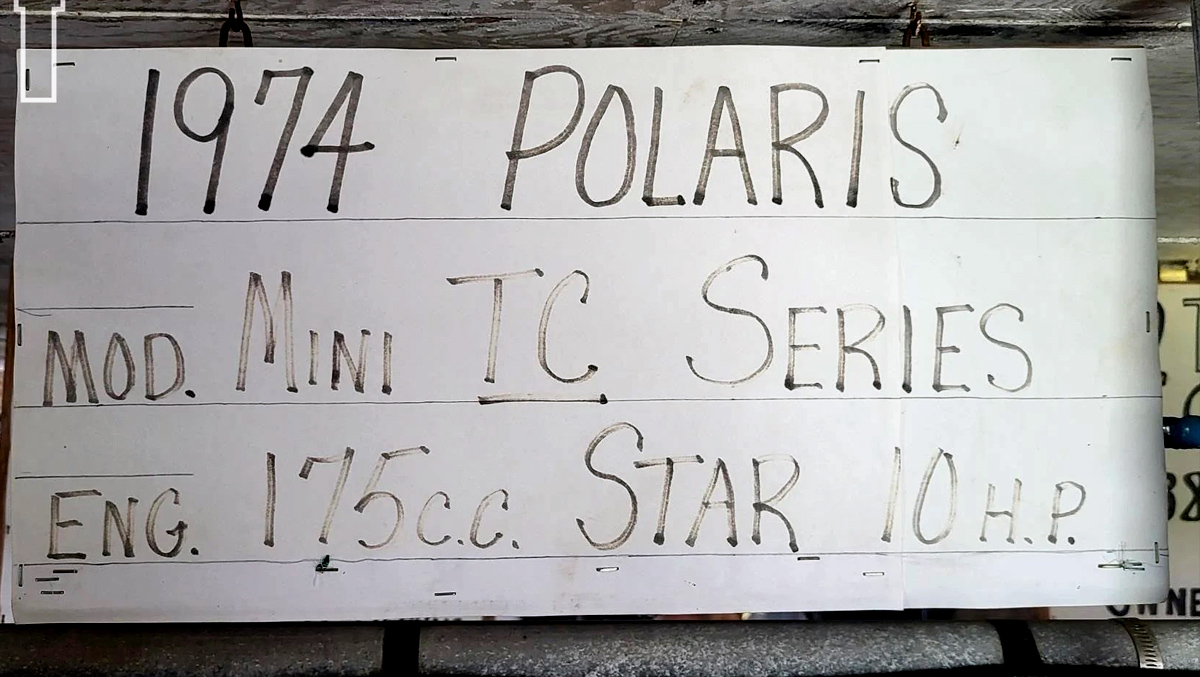 1974 POLARIS
MOD. MINI TC SERIES
ENG. 175 C.C. STAR 10 H.P.
OWNE